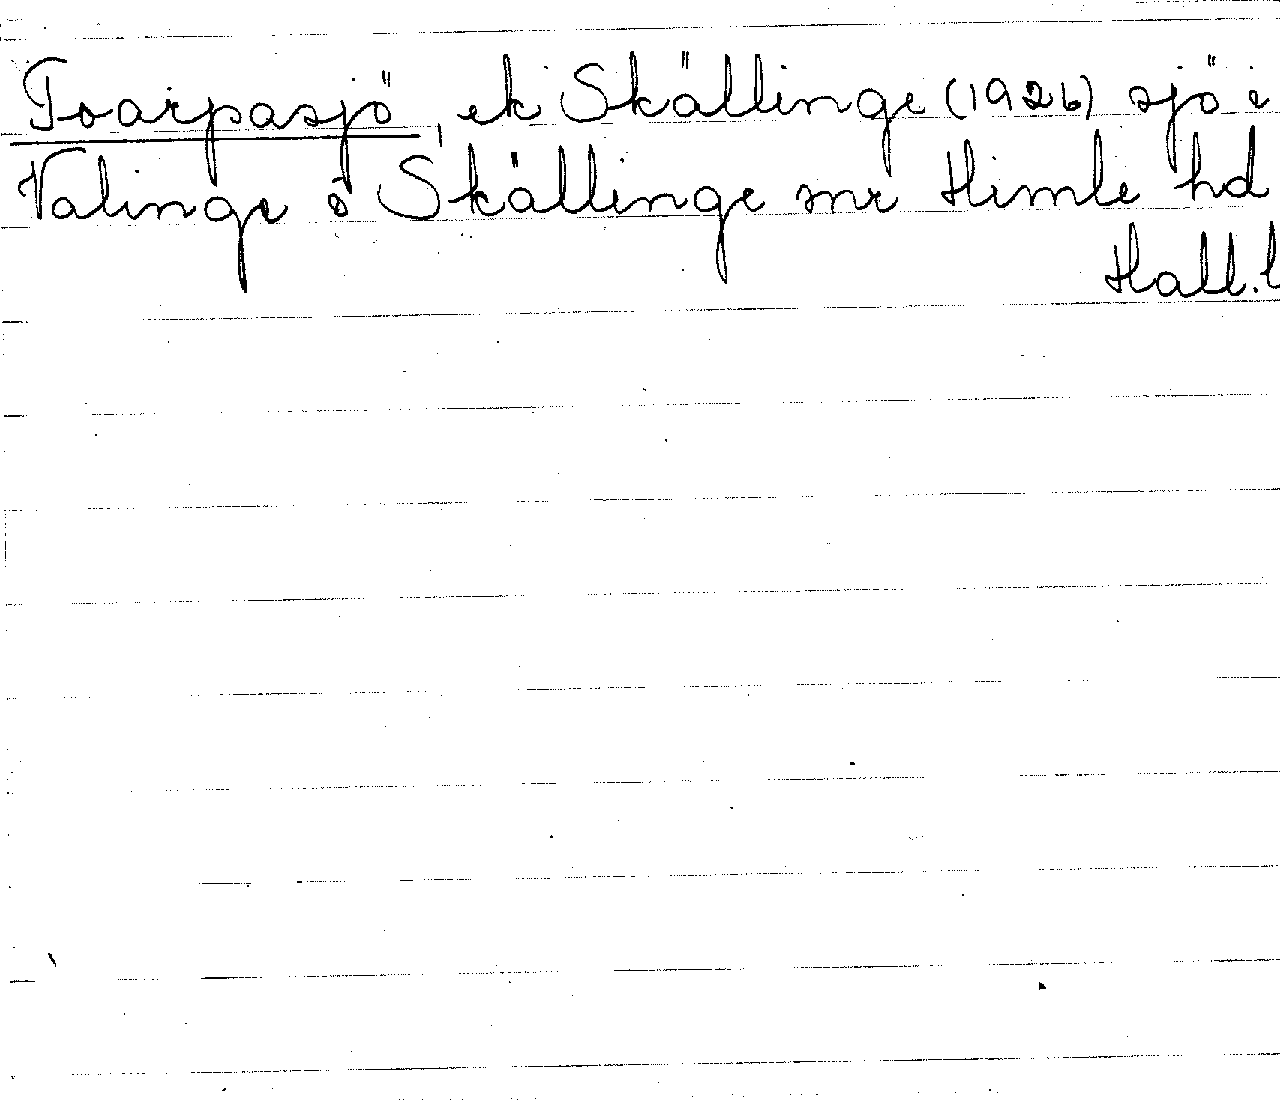 Toarpasjö, ek Skällinge (1926) sjö i
Valinge o Skällinge snr Himle hd
Hall. l